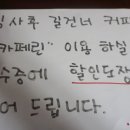 식사후 길건너 커피
"카페린" 이용 하실
수증에 할인도장
어 드립니다.